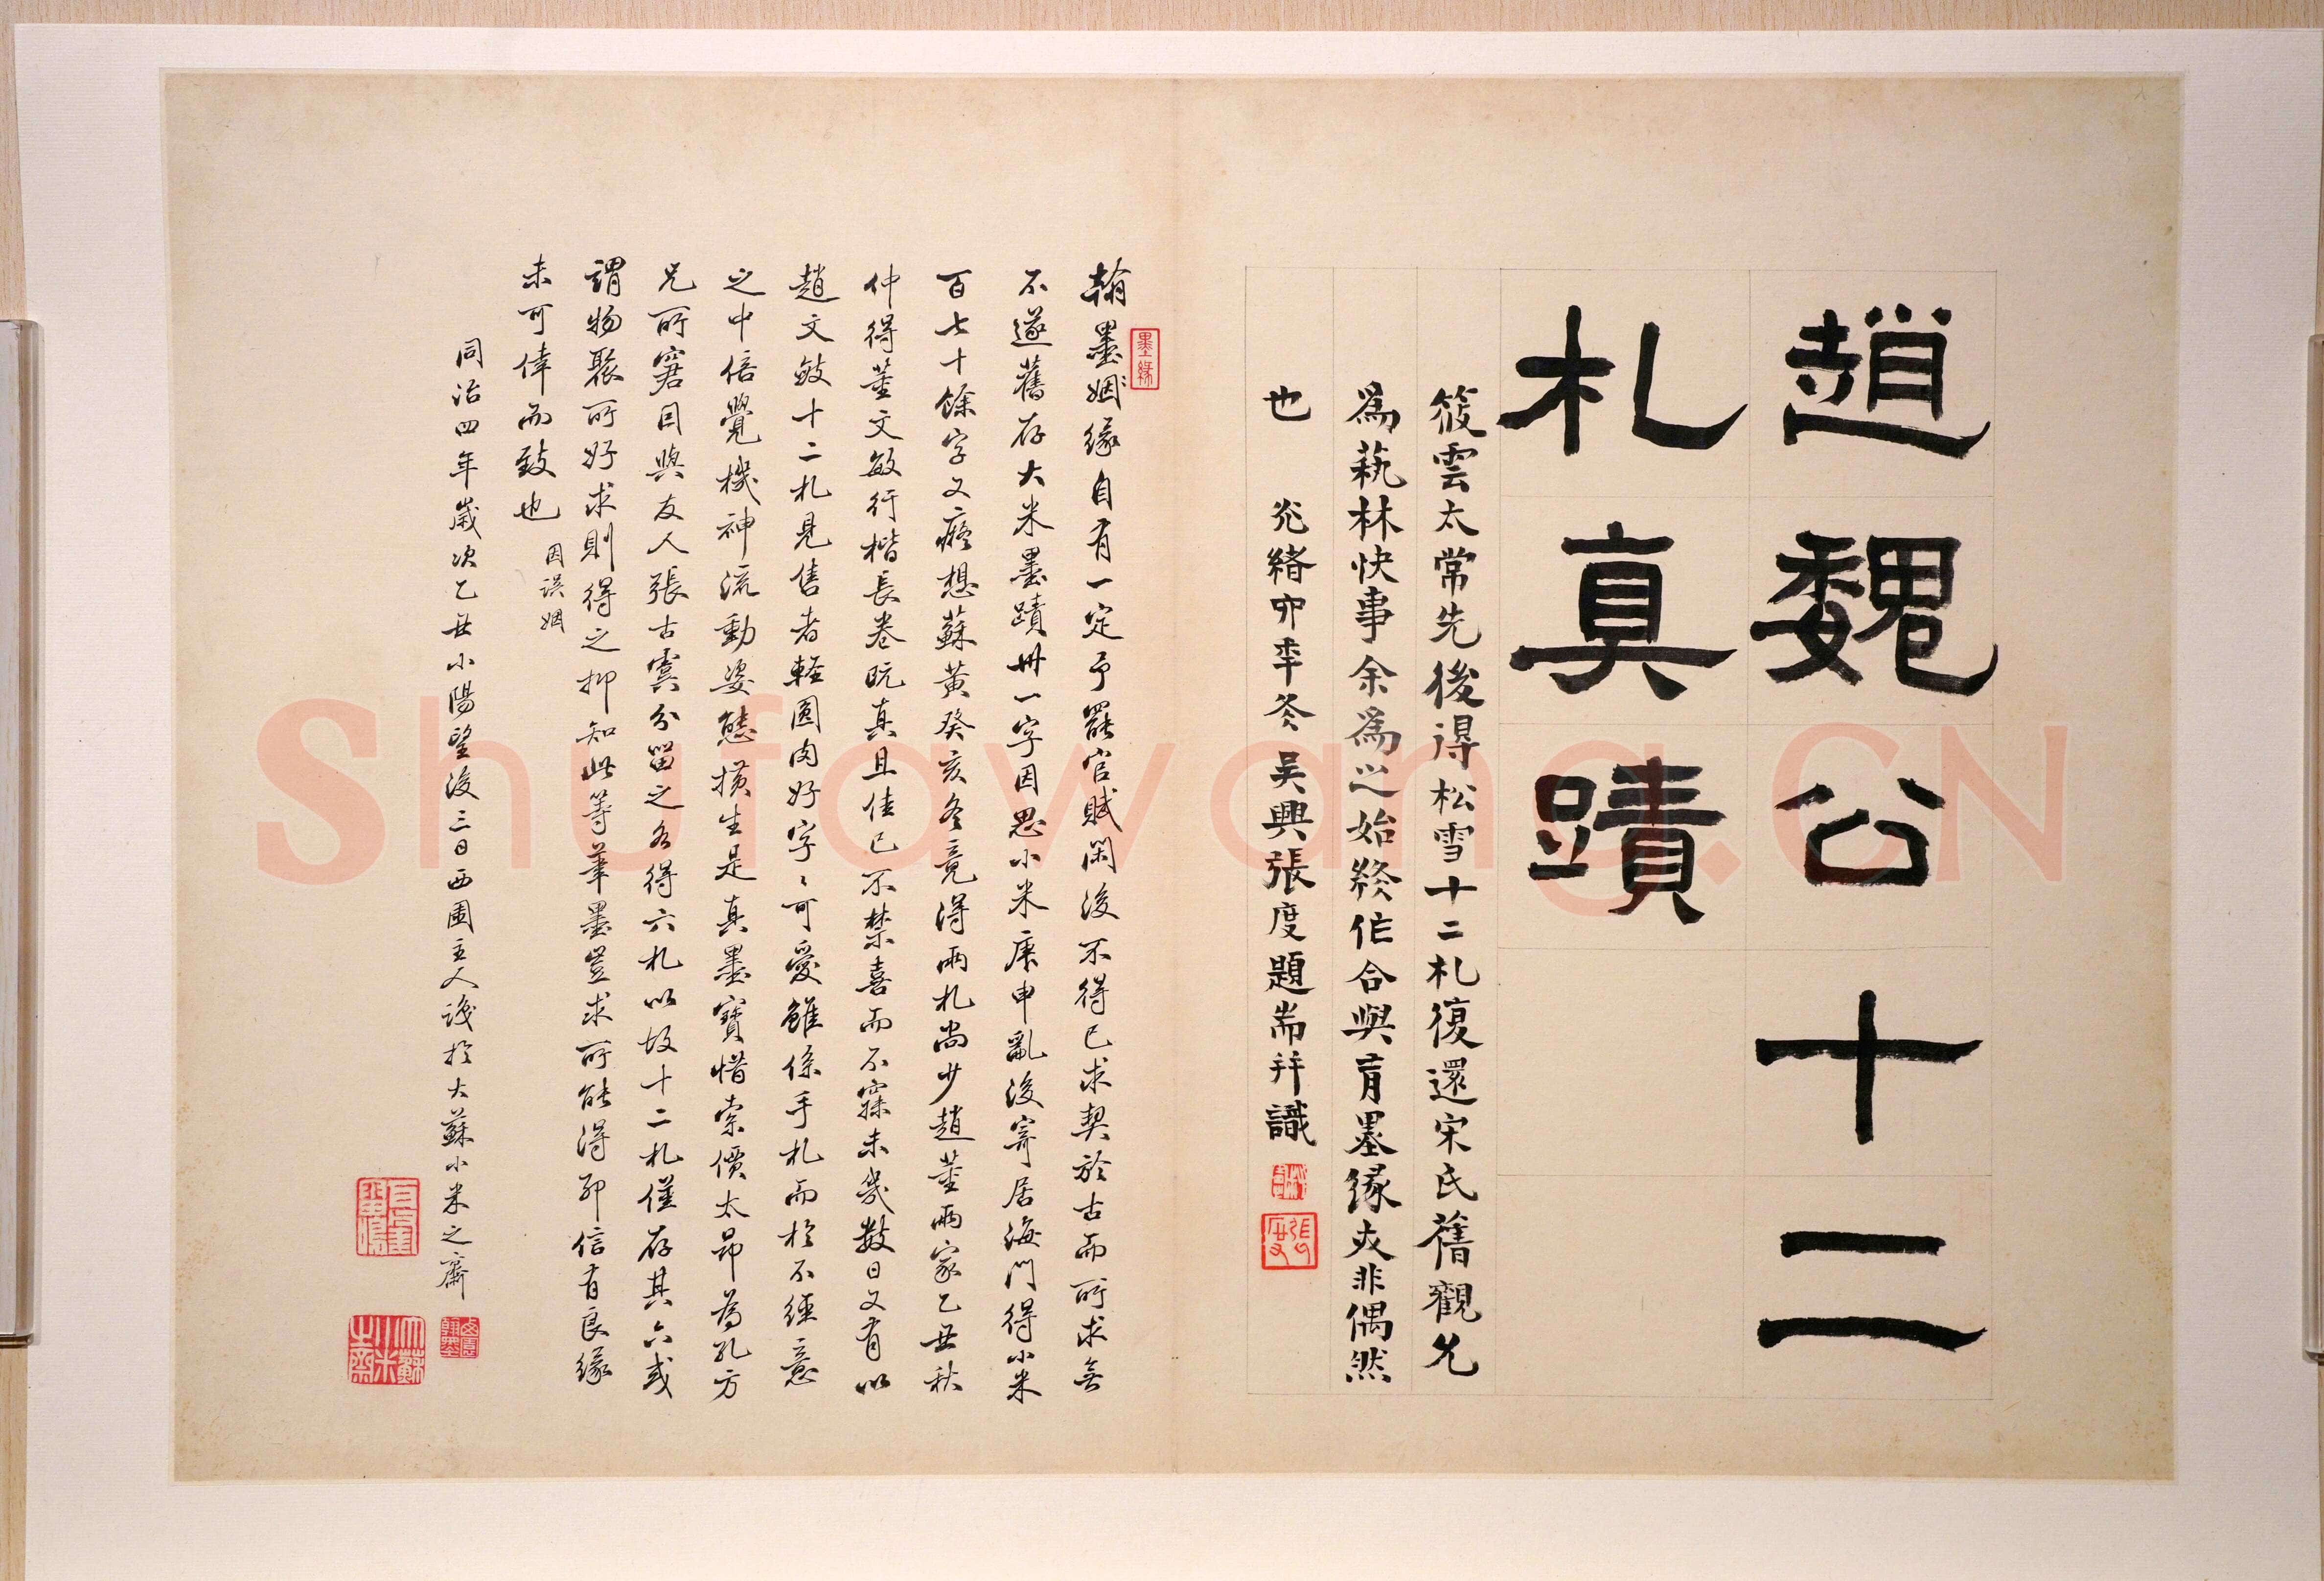 趙魏公十二
札真蹟
筱雲太常先後得松雪十二札復還宋氏舊觀允
為蓺林快事余為之始終作合與有墨緣夾非偶然
也 光緒卯年冬吳興張度題耑并識
張度
墨緣
翰墨姻緣自有一定予罷官賦閑後不得已求契於古而所求無
不遂舊存大米墨蹟卅一字因思小米庚申亂後寄居海門得小米
百七十餘字又癡想蘇黃癸亥冬竟得兩札尚少趙董兩家乙丑秋
仲得董文敏行楷長卷既真且佳已不禁喜而不寐未幾數日又有以
趙文敏十二札見售者輕圓肉好字字可愛雖係手札而於不經意
之中倍覺機神流動姿態橫生是真墨寶惜索價太昂為孔方
兄所窘因與友人張古虞分留之各得六札以故十二札僅存其六或
謂物聚所好求則得之抑知此等筆墨豈求所能得耶信有良緣
未可倖而致也 因誤姻
同治四年歲次乙丑小陽望後三日西圃主人識於大蘇小米之齋
大蘇小米之齋